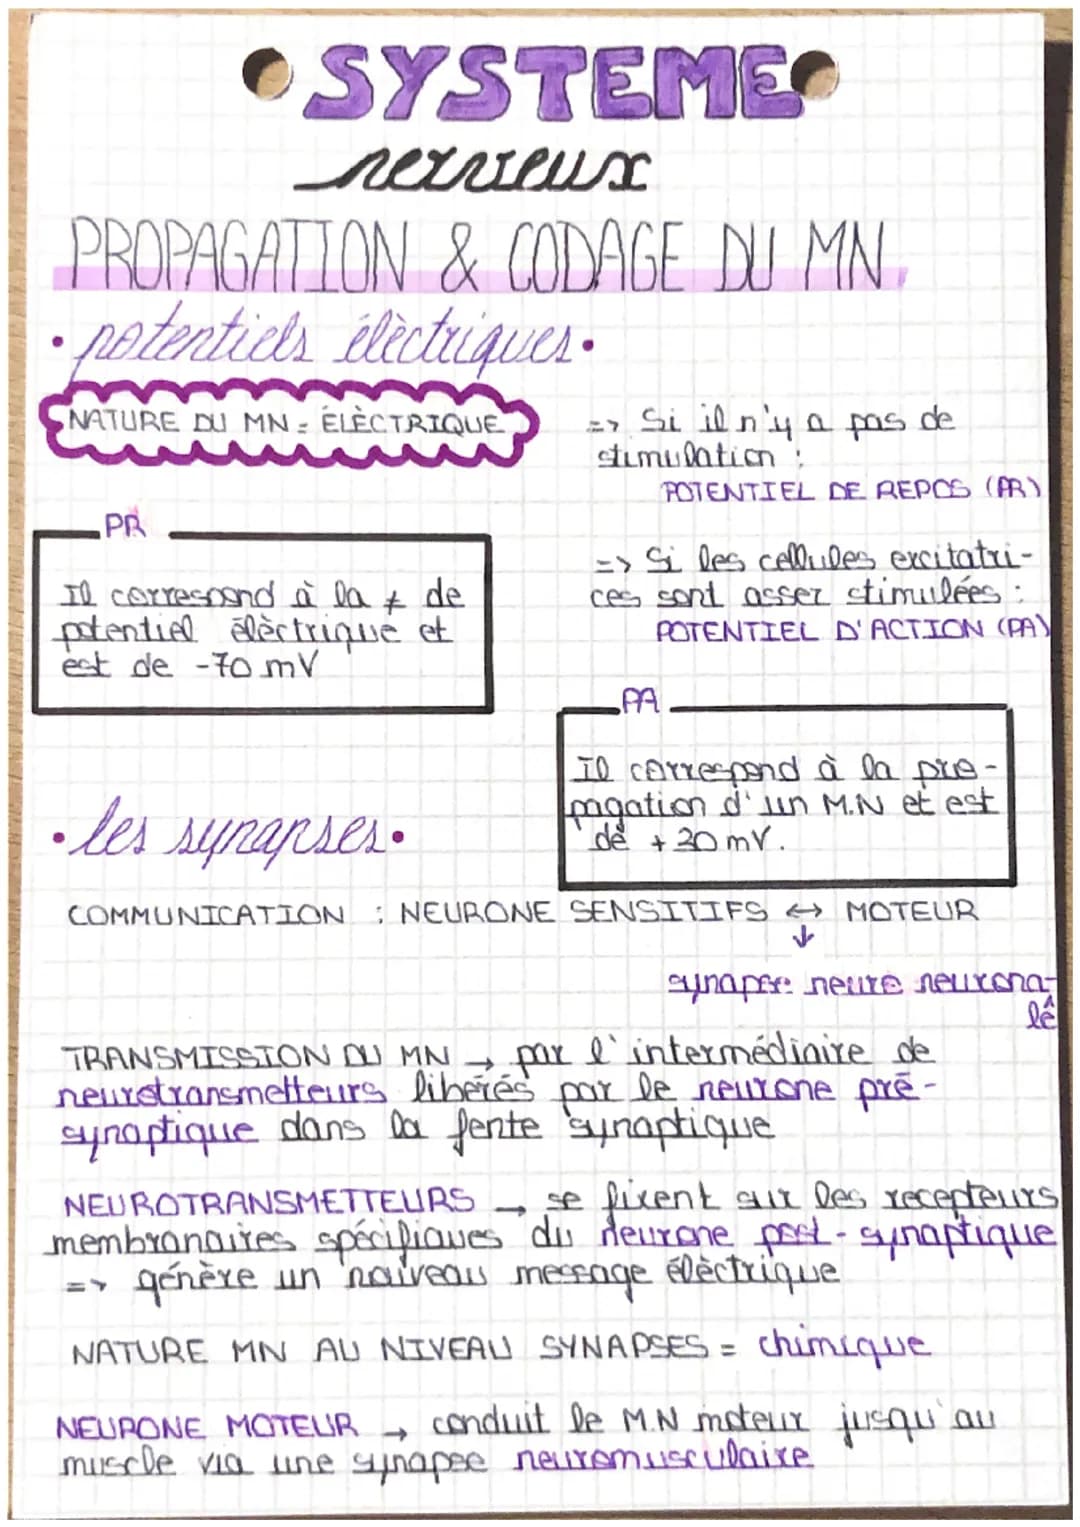 SYSTEME
nerveux
PROPAGATION & CODAGE DU MN
• potentiels élèctriques •
NATURE DU MN = ÉLÈCTRIQUE
=> Si il n'y a pas de
stimulation :
POTENTIEL DE REPOS (PR)
PR
Il correspond à la ≠ de
potentiel élèctrique et
est de -70 mV
=> Si les cellules excitatri-
ces sont assez stimulées :
POTENTIEL D'ACTION (PA)
PA
Il correspond à la pro-
pagation d'un M.N et est
de +30 mV.
• les synapses •
COMMUNICATION : NEURONE SENSITIFS ↔ MOTEUR
↓
synapse neuro neurona-
le
TRANSMISSION DU MN → par l'intermédiaire de
neurotransmetteurs libérés par le neurone pré-
synaptique dans la fente synaptique
NEUROTRANSMETTEURS → se fixent sur les recepteurs
membranaires spécifiques du neurone post-synaptique
=> génère un nouveau message élèctrique
NATURE MN AU NIVEAU SYNAPSES = chimique
NEURONE MOTEUR → conduit le M.N moteur jusqu'au
muscle via une synapse neuromusculaire